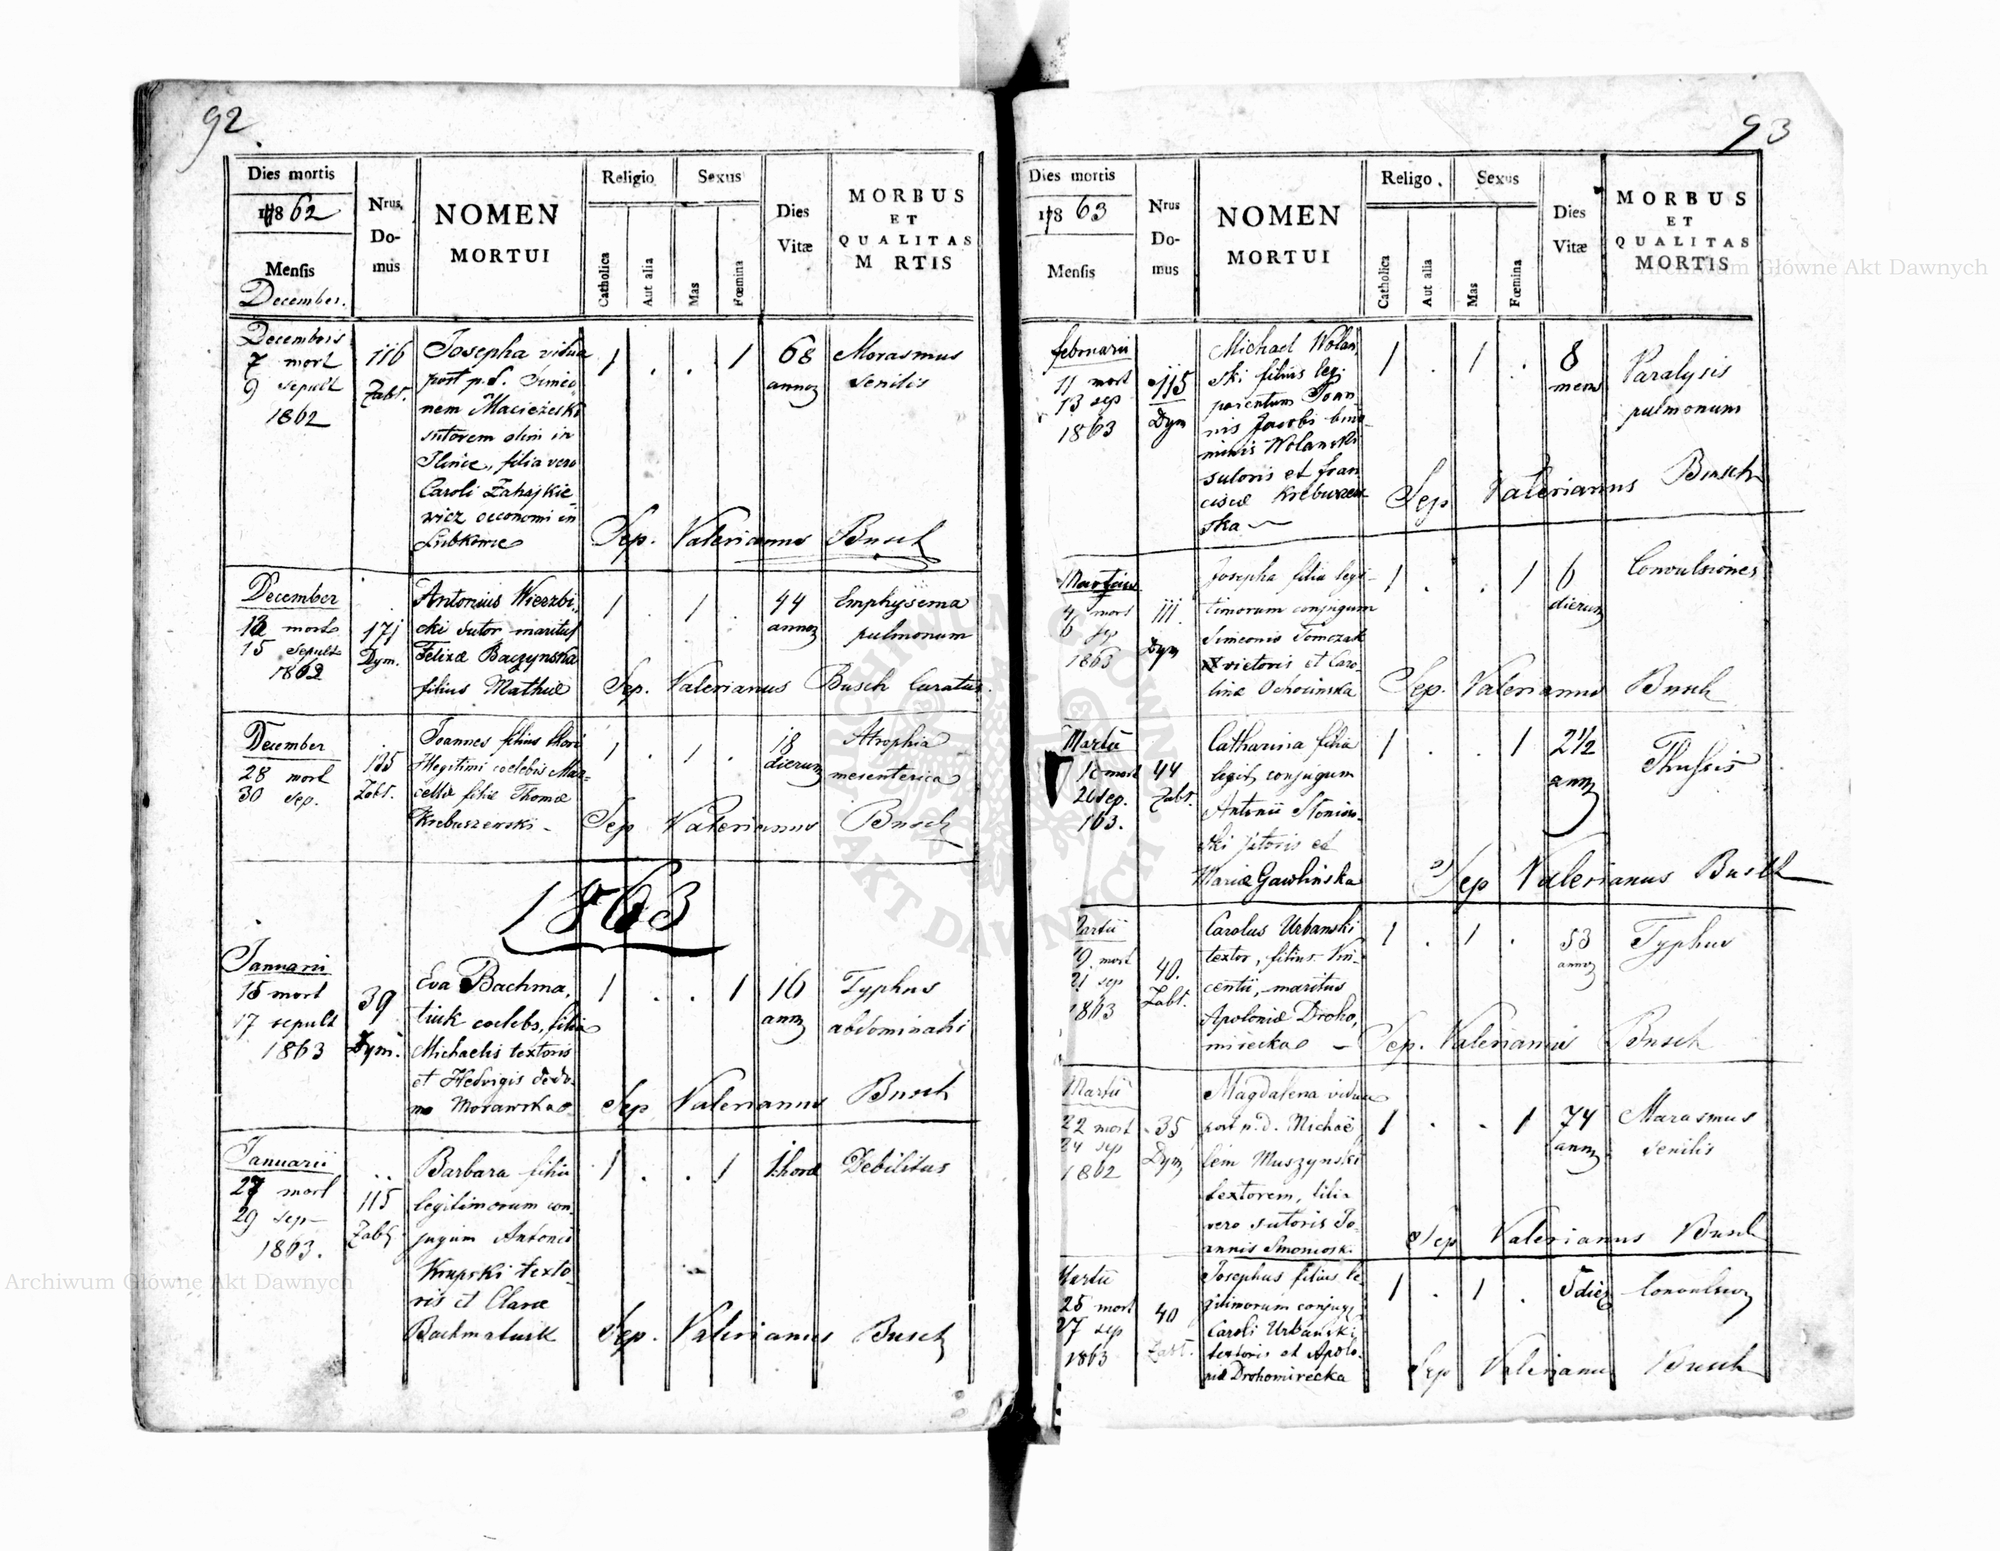 92
Dies mortis
Nrus
Do-
mus
NOMEN
MORTUI
Religio
Sexus
Catholica
Aut alia
Mas
Fœmina
Dies
Vitæ
MORBUS
ET
QUALITAS
M RTIS
1862
Mensis
December.
Decembris
7 mort
9 sepult
1862
116
Zabt.
Josepha vidua
post p.d. Simeo
nem Macieżeski
sutorem olim in
filia vero
Caroli Zahajkie
wicz oeconomi in
1 . . 1
68
annor
Morasmus
senilis
Sep. Valerianus Busch
December
mort
15 sepult
1862
171
Dym.
Antonius Wierzbi,
cki sutor maritus
Felixæ Baczynska
filius Mathiæ
1 . 1 .
44
annor
Emphysema
pulmonum
Sep. Valerianus Busch Curatus.
December
28 mort
30 sep.
135
Zabt.
Joannes filius thori
illegitimi coelebis Mar-
cellæ filiæ Thomæ
Krebuszewski -
1 . 1 .
18
dierum
Atrophia
mesenterica
Sep Valerianus Busch
1863
Januarii
15 mort
17 sepult
1863
39
Dym.
Eva Bachma,
tiuk coelebs, filia
Michaelis textoris
et Hedvigis de do-
mo Morawska
1 . . 1
16
annor
Typhus
abdominalis
Sep Valerianus Busch
Januarii
27 mort
29 sep
1863.
115
Zabt
Barbara filia
legitimorum con-
jugum Antonii
Krupski texto-
ris et Claræ
Bachmatiuk
1 . . 1
1 horæ
Debilitas
Sep. Valerianus Busch
93
Dies mortis
Nrus
Do-
mus
NOMEN
MORTUI
Religo
Sexus
Catholica
Aut alia
Mas
Fœmina
Dies
Vitæ
MORBUS
ET
QUALITAS
MORTIS
1863
Mensis
februarii
11 mort
13 sep
1863
115
Dym
Michael Wolan,
ski filius leg.
parentum Joan-
nis Jacobi bino
minis Wolanski
sutoris et fran
ciscæ Krebuszew
ska
1 . 1 .
8
mens
Paralysis
pulmonum
Sep Valerianus Busch
Martius
4 mort
6 sep
1863
111.
Dym
Josepha filia legi-
timorum conjugum
Simeonis Tomczak
rictoris et Caro-
linæ Ochocinska
1 . . 1
6
dierum
Convulsiones
Sep. Valerianus Busch
Martii
mort
sep.
163.
44
Zabt.
Catharina filia
legit. conjugum
Antonii Stoniow-
ski et
Mariæ Gawlinska
1 . . 1
2 1/2
annor
Thussis
Sep Valerianus Busch
Martii
19 mort
21 sep
1863
40.
Zabt.
Carolus Urbanski
textor, filius Vin-
centii, maritus
Apoloniæ Droho,
mirecka -
1 . 1 .
53
annor
Typhus
Sep. Valerianus Busch
Martii
22 mort
24 sep
1862
35
Dym
Magdalena vidua
post p.d. Michae
lem Muszynski
textorem, filia
vero sutoris Jo-
annis Smonioski
1 . . 1
74
annor
Marasmus
senilis
Sep Valerianus Busch
Martii
25 mort
27 sep
1863
40
Zabt.
Josephus filius le
gitimorum conjug.
Caroli Urbanski,
textoris et Apolo-
niæ Drohomirecka
1 . 1 .
5 dier
Convulsion
Sep Valerianus Busch
Archiwum Główne Akt Dawnych
Archiwum Główne Akt Dawnych
ARCHIWUM GŁÓWNE AKT DAWNYCH